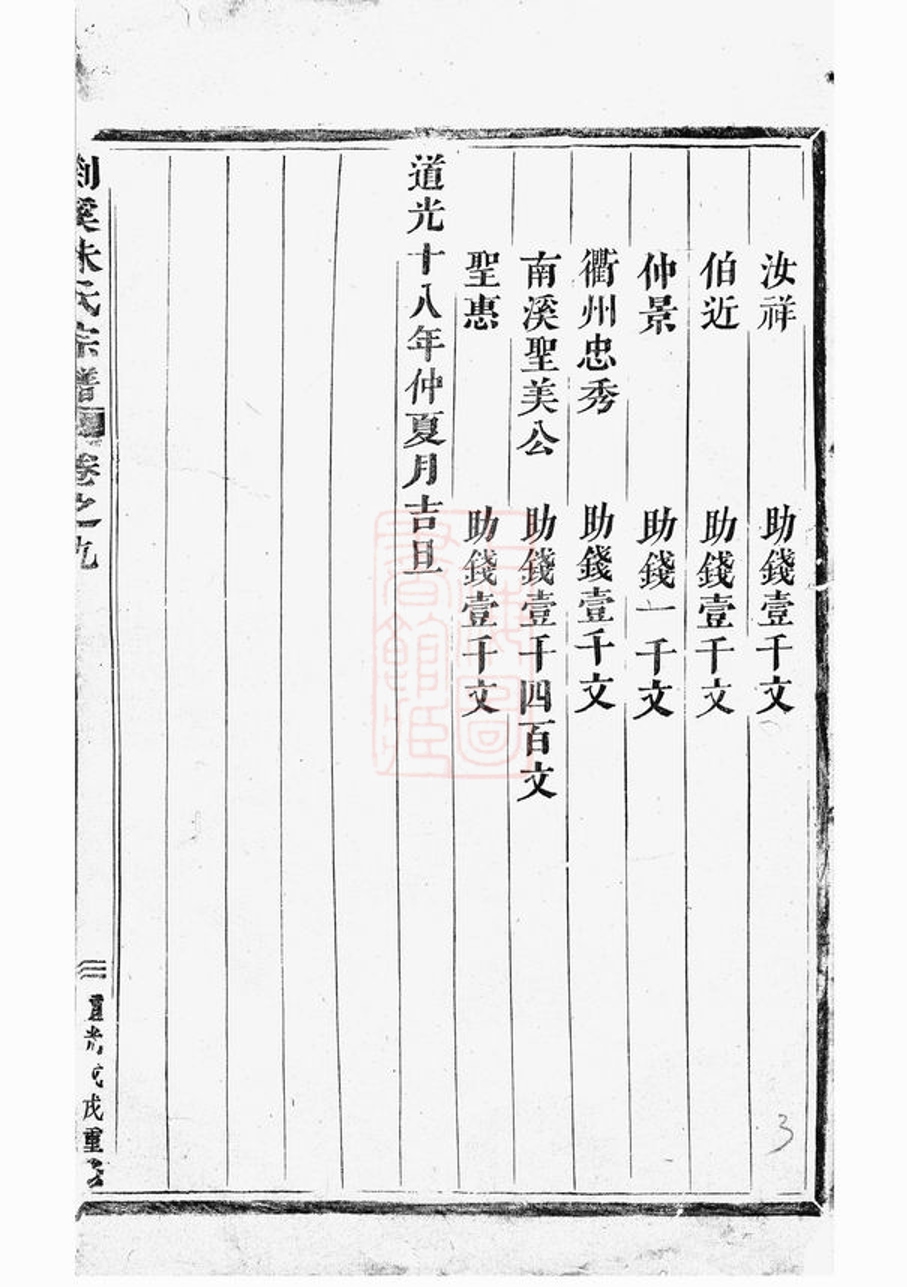 汝祥 助錢壹千文
伯近 助錢壹千文
仲景 助錢一千文
衢州忠秀 助錢壹千文
南溪聖美公 助錢壹千四百文
聖惠 助錢壹千文
道光十八年仲夏月吉旦
剡溪朱氏宗譜 卷之九
三
道光戊戌重
3